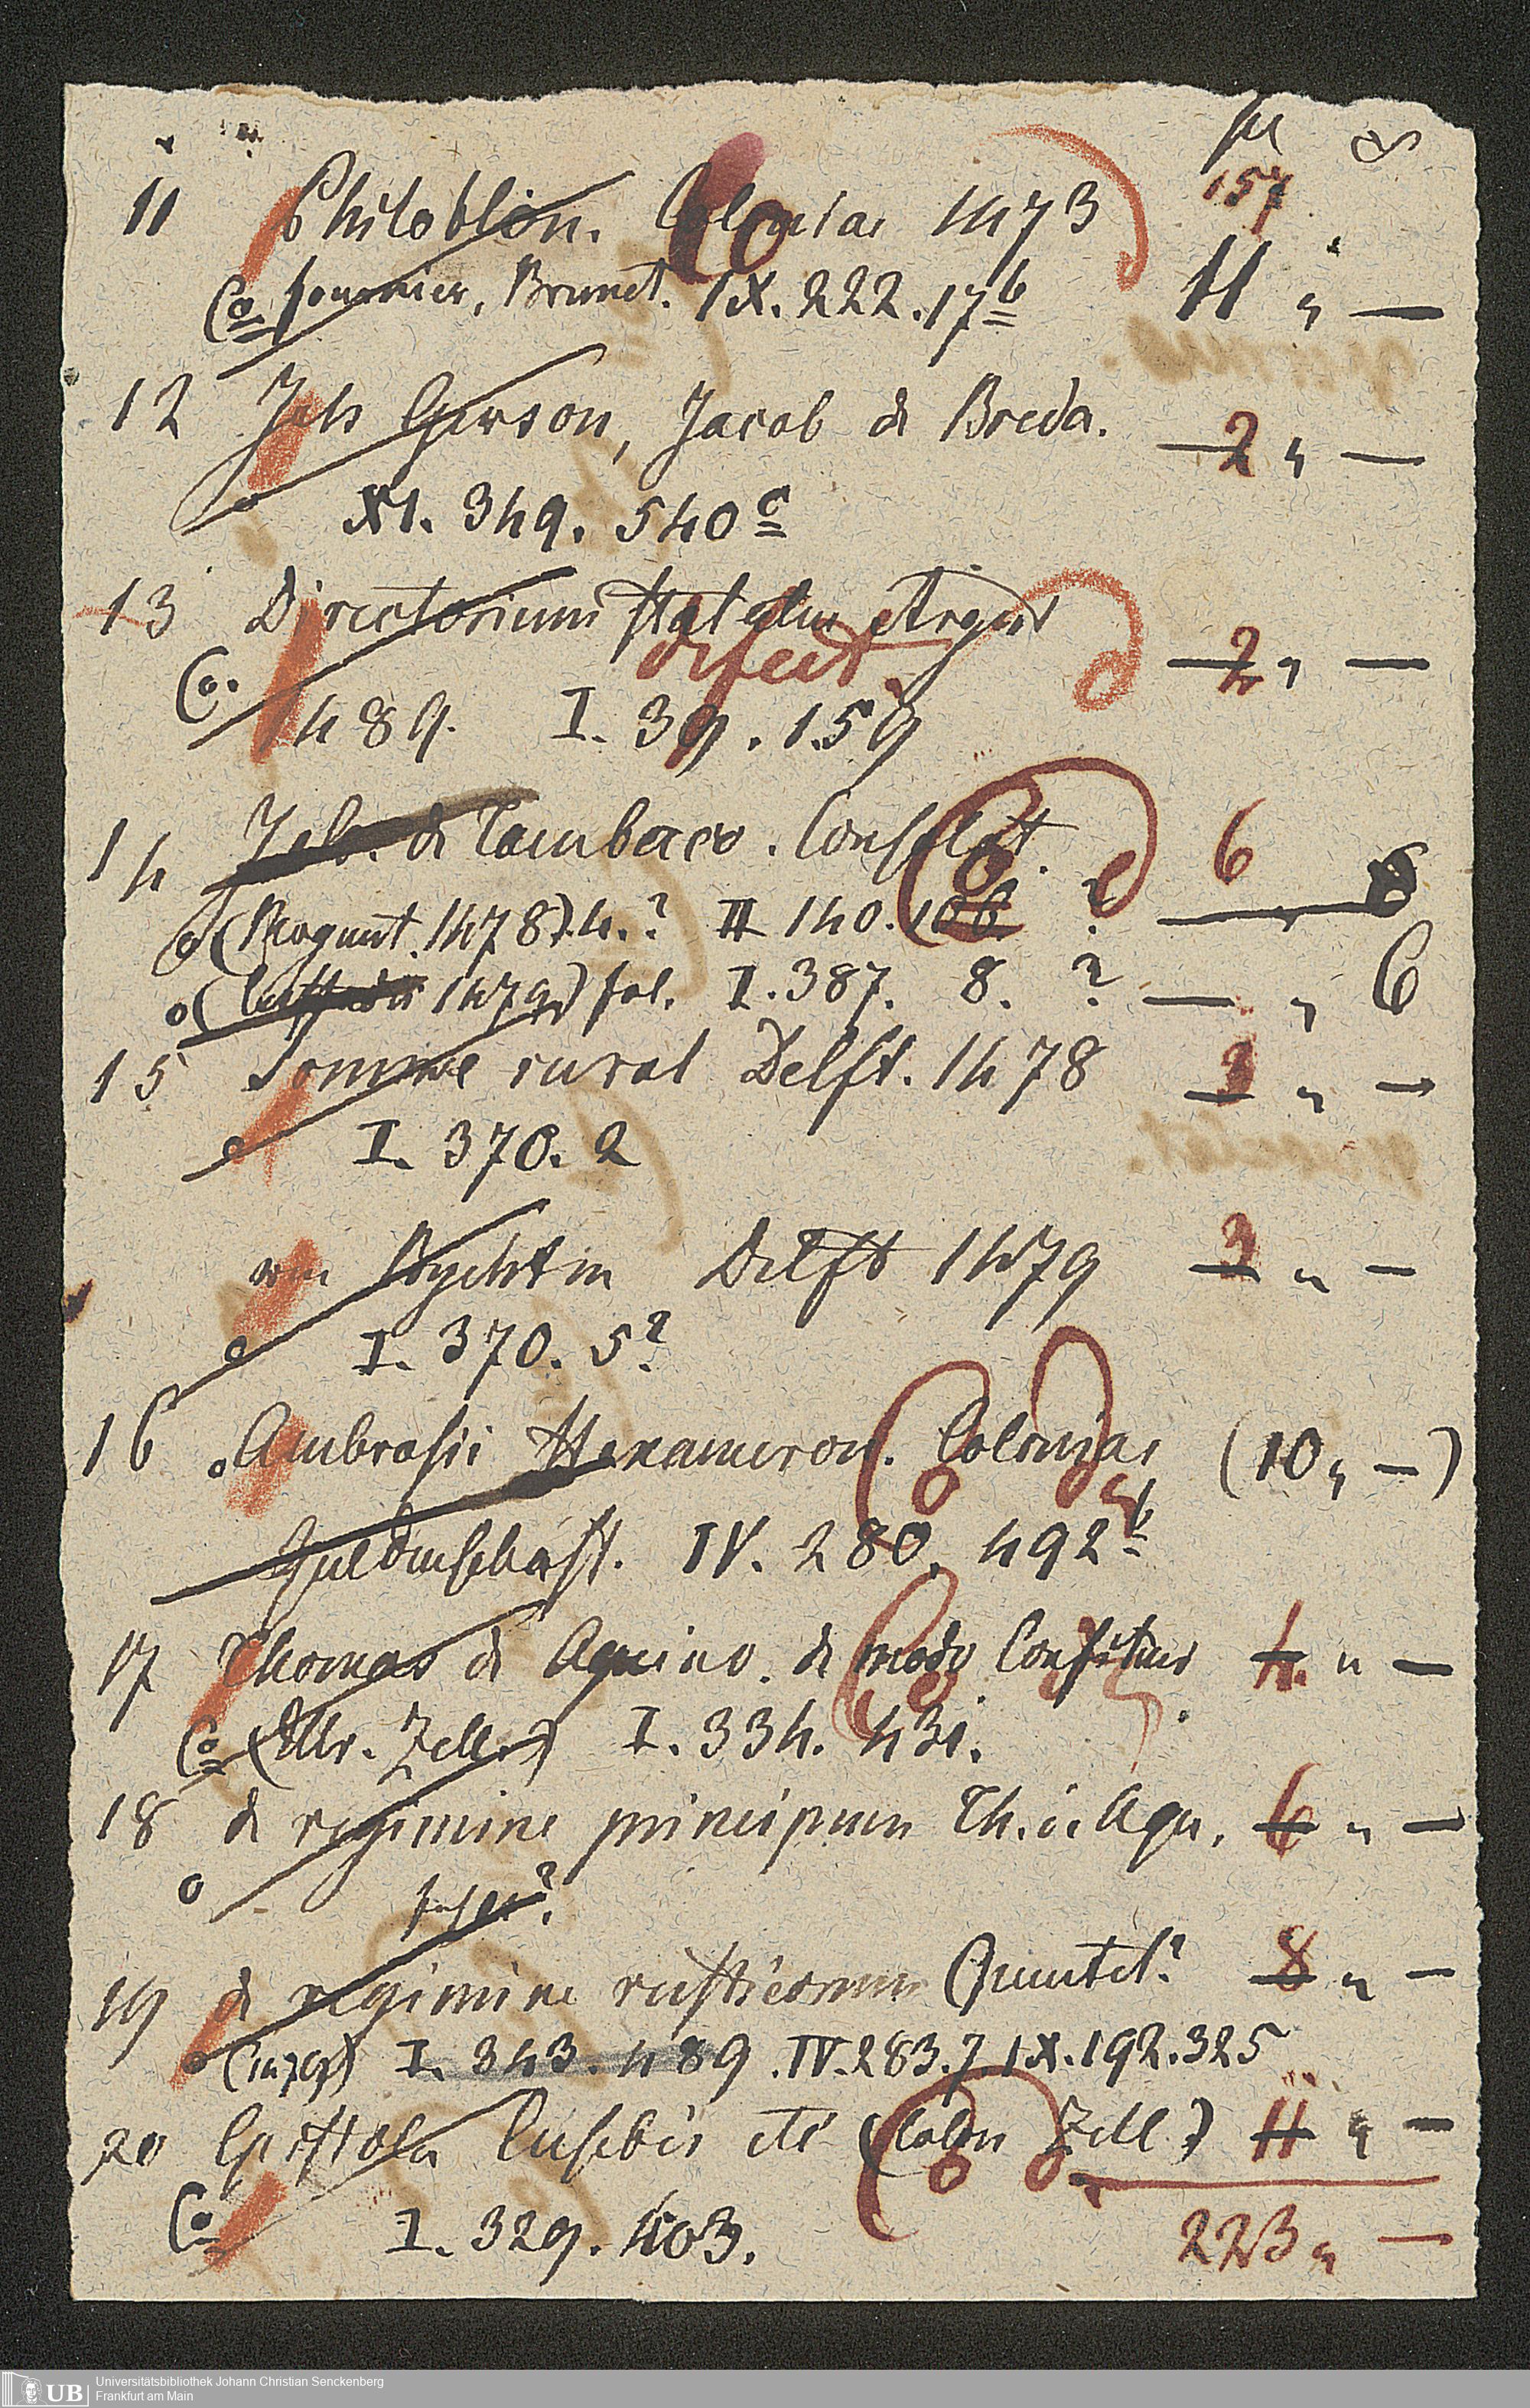 157
11 Philoblon. Coloniae 1473
Co Fournier, Brunet. IX. 222. 17b 11 " —
12 Joh Gerson, Jacob de Breda. 2 " —
XI. 349. 540c
13 Directorium Statuum Argent 2 " —
defect.
Co. 1489. I. 39. 159
14 Joh. de Tambaco. Consolat. 6
o (Mogunt. 1478) 4.? II 140. 106. ? — " 6
o ( 1479) fol. I. 387. 8. ? — " 6
15 Somme rural Delft. 1478 3 " —
o I. 370. 2
Delft 1479 3 " —
o I. 370. 5?
16 o Ambrosii Hexameron. Coloniae (10 " —)
Guldenschaff. IV. 280. 492b
17 Thomas de Aquino. de modo Confitendi 4. " —
Co (Ulr. Zell.) I. 334. 431.
18 de regimine principum Th. de Aqu. 6 " —
o
19 de regimine rusticorum Quentel? 8 " —
o (1479) I. 343. 489. IV. 283. 7. IX. 192. 325
20 Epistola Eusebii etc (Colon Zell.) 11 " —
Co I. 329. 403.
223 " —
UB Universitätsbibliothek Johann Christian Senckenberg
Frankfurt am Main